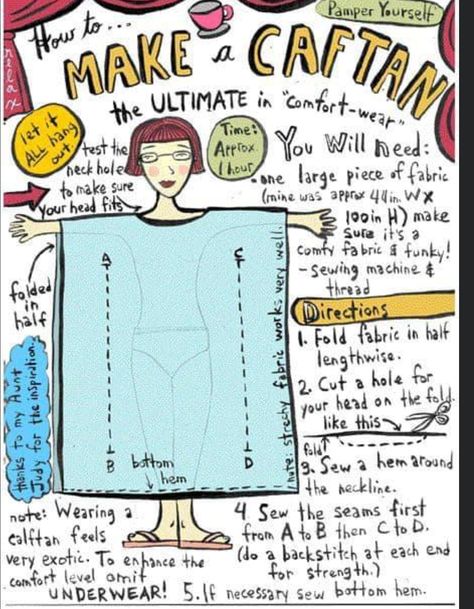 Pamper Yourself
How to...
MAKE a CAFTAN
the ULTIMATE in "comfort-wear"
relax
let it
ALL hang
out.
test the
neck hole
to make sure
your head fits
Time:
Approx.
1 hour
You Will Need:
• one large piece of fabric
(mine was approx 44in. W x
100in H) make
sure it's a
comfy fabric & funky!
- sewing machine &
thread
folded
in
half
A
C
B
D
bottom
hem
note: strechy fabric works very well.
thanks to my Aunt
Judy for the inspiration.
Directions
1. Fold fabric in half
lengthwise.
2. Cut a hole for
your head on the fold.
like this
fold
3. Sew a hem around
the neckline.
4. Sew the seams first
from A to B then C to D.
(do a backstitch at each end
for strength.)
5. If necessary sew bottom hem.
note: Wearing a
calftan feels
very exotic. To enhance the
comfort level omit
UNDERWEAR!